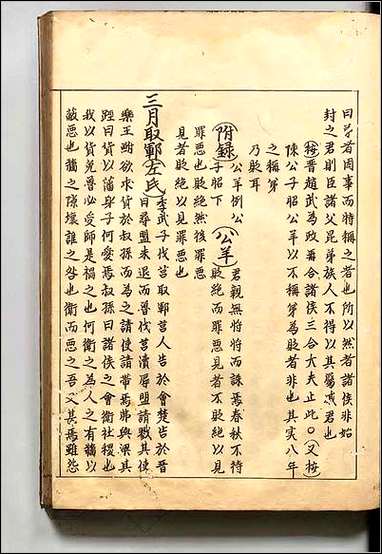 曰弟者因事而特稱之者也所以然者諸侯非始
封之君則臣諸父昆弟族人不得以其屬戚君也
按晉趙武為政着合諸侯三合大夫止此○又按
陳公子昭公羊以不稱弟為貶者非也其實八年
之稱弟
乃貶耳
附錄公羊例公子昭下公羊君親無將將而誅焉春秋不待貶絕而罪惡見者不貶絕以見
罪惡也貶絕然後罪惡
見者貶絕以見罪惡也
三月取鄆左氏季武子伐莒取鄆莒人告於會楚告於晉
曰尋盟未退而魯伐莒瀆齊盟請戮其使
樂王鮒欲求貨於叔孫而為之請使請帶焉弗與梁其
踁曰貨以藩身子何愛焉叔孫曰諸侯之會衛社稷也
我以貨免魯必受師是禍之也何衛之為人之有牆以
蔽惡也牆之隙壞誰之咎也衛而惡之吾又甚焉雖怨